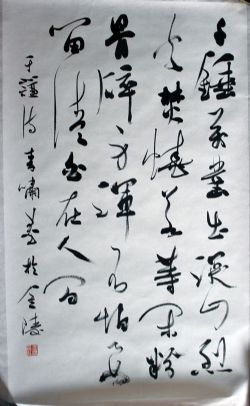 千錘萬鑿出深山烈
火焚燒若等閒粉
骨碎身渾不怕要
留清白在人間
于謙詩 青嘯書於金陵